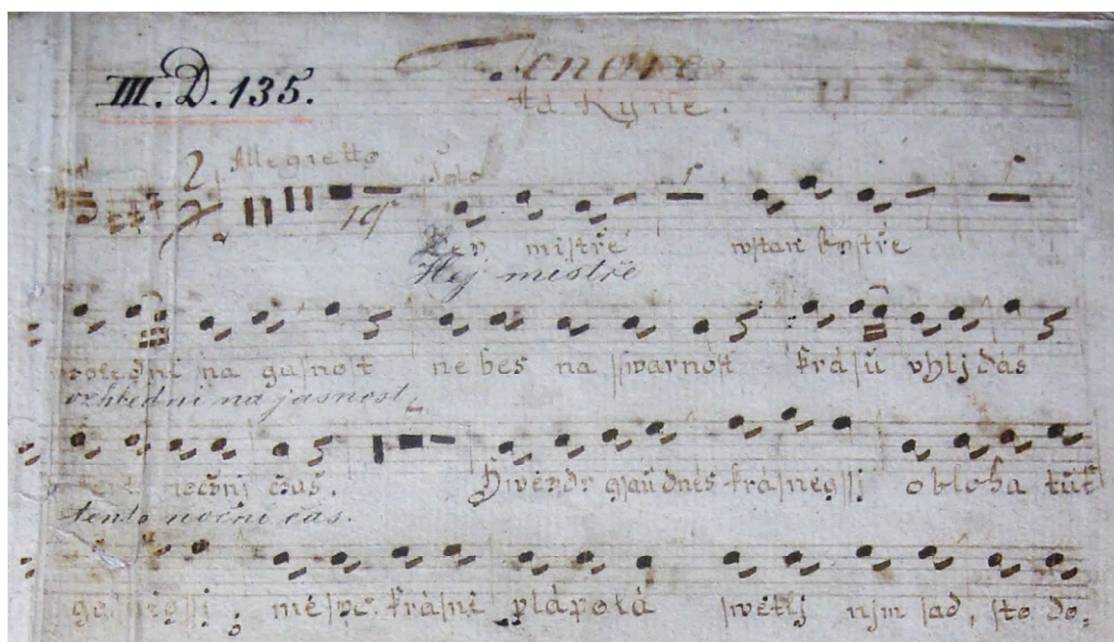 III. D. 135.
Tenore
Ad Kyrie.
Allegretto
Solo
2
19
mistře wstan bystře
Hej mistře
na gasnost nebes na sswarnost krásu vhljdáš
vzhledni na jasnost,
nočnj čas.
Hwězdy gsau dnes krásnegssj obloha tuť
tento noční čas.
gasnegssj; mésyc krásně plápolá swětlj njm sad, sto do,